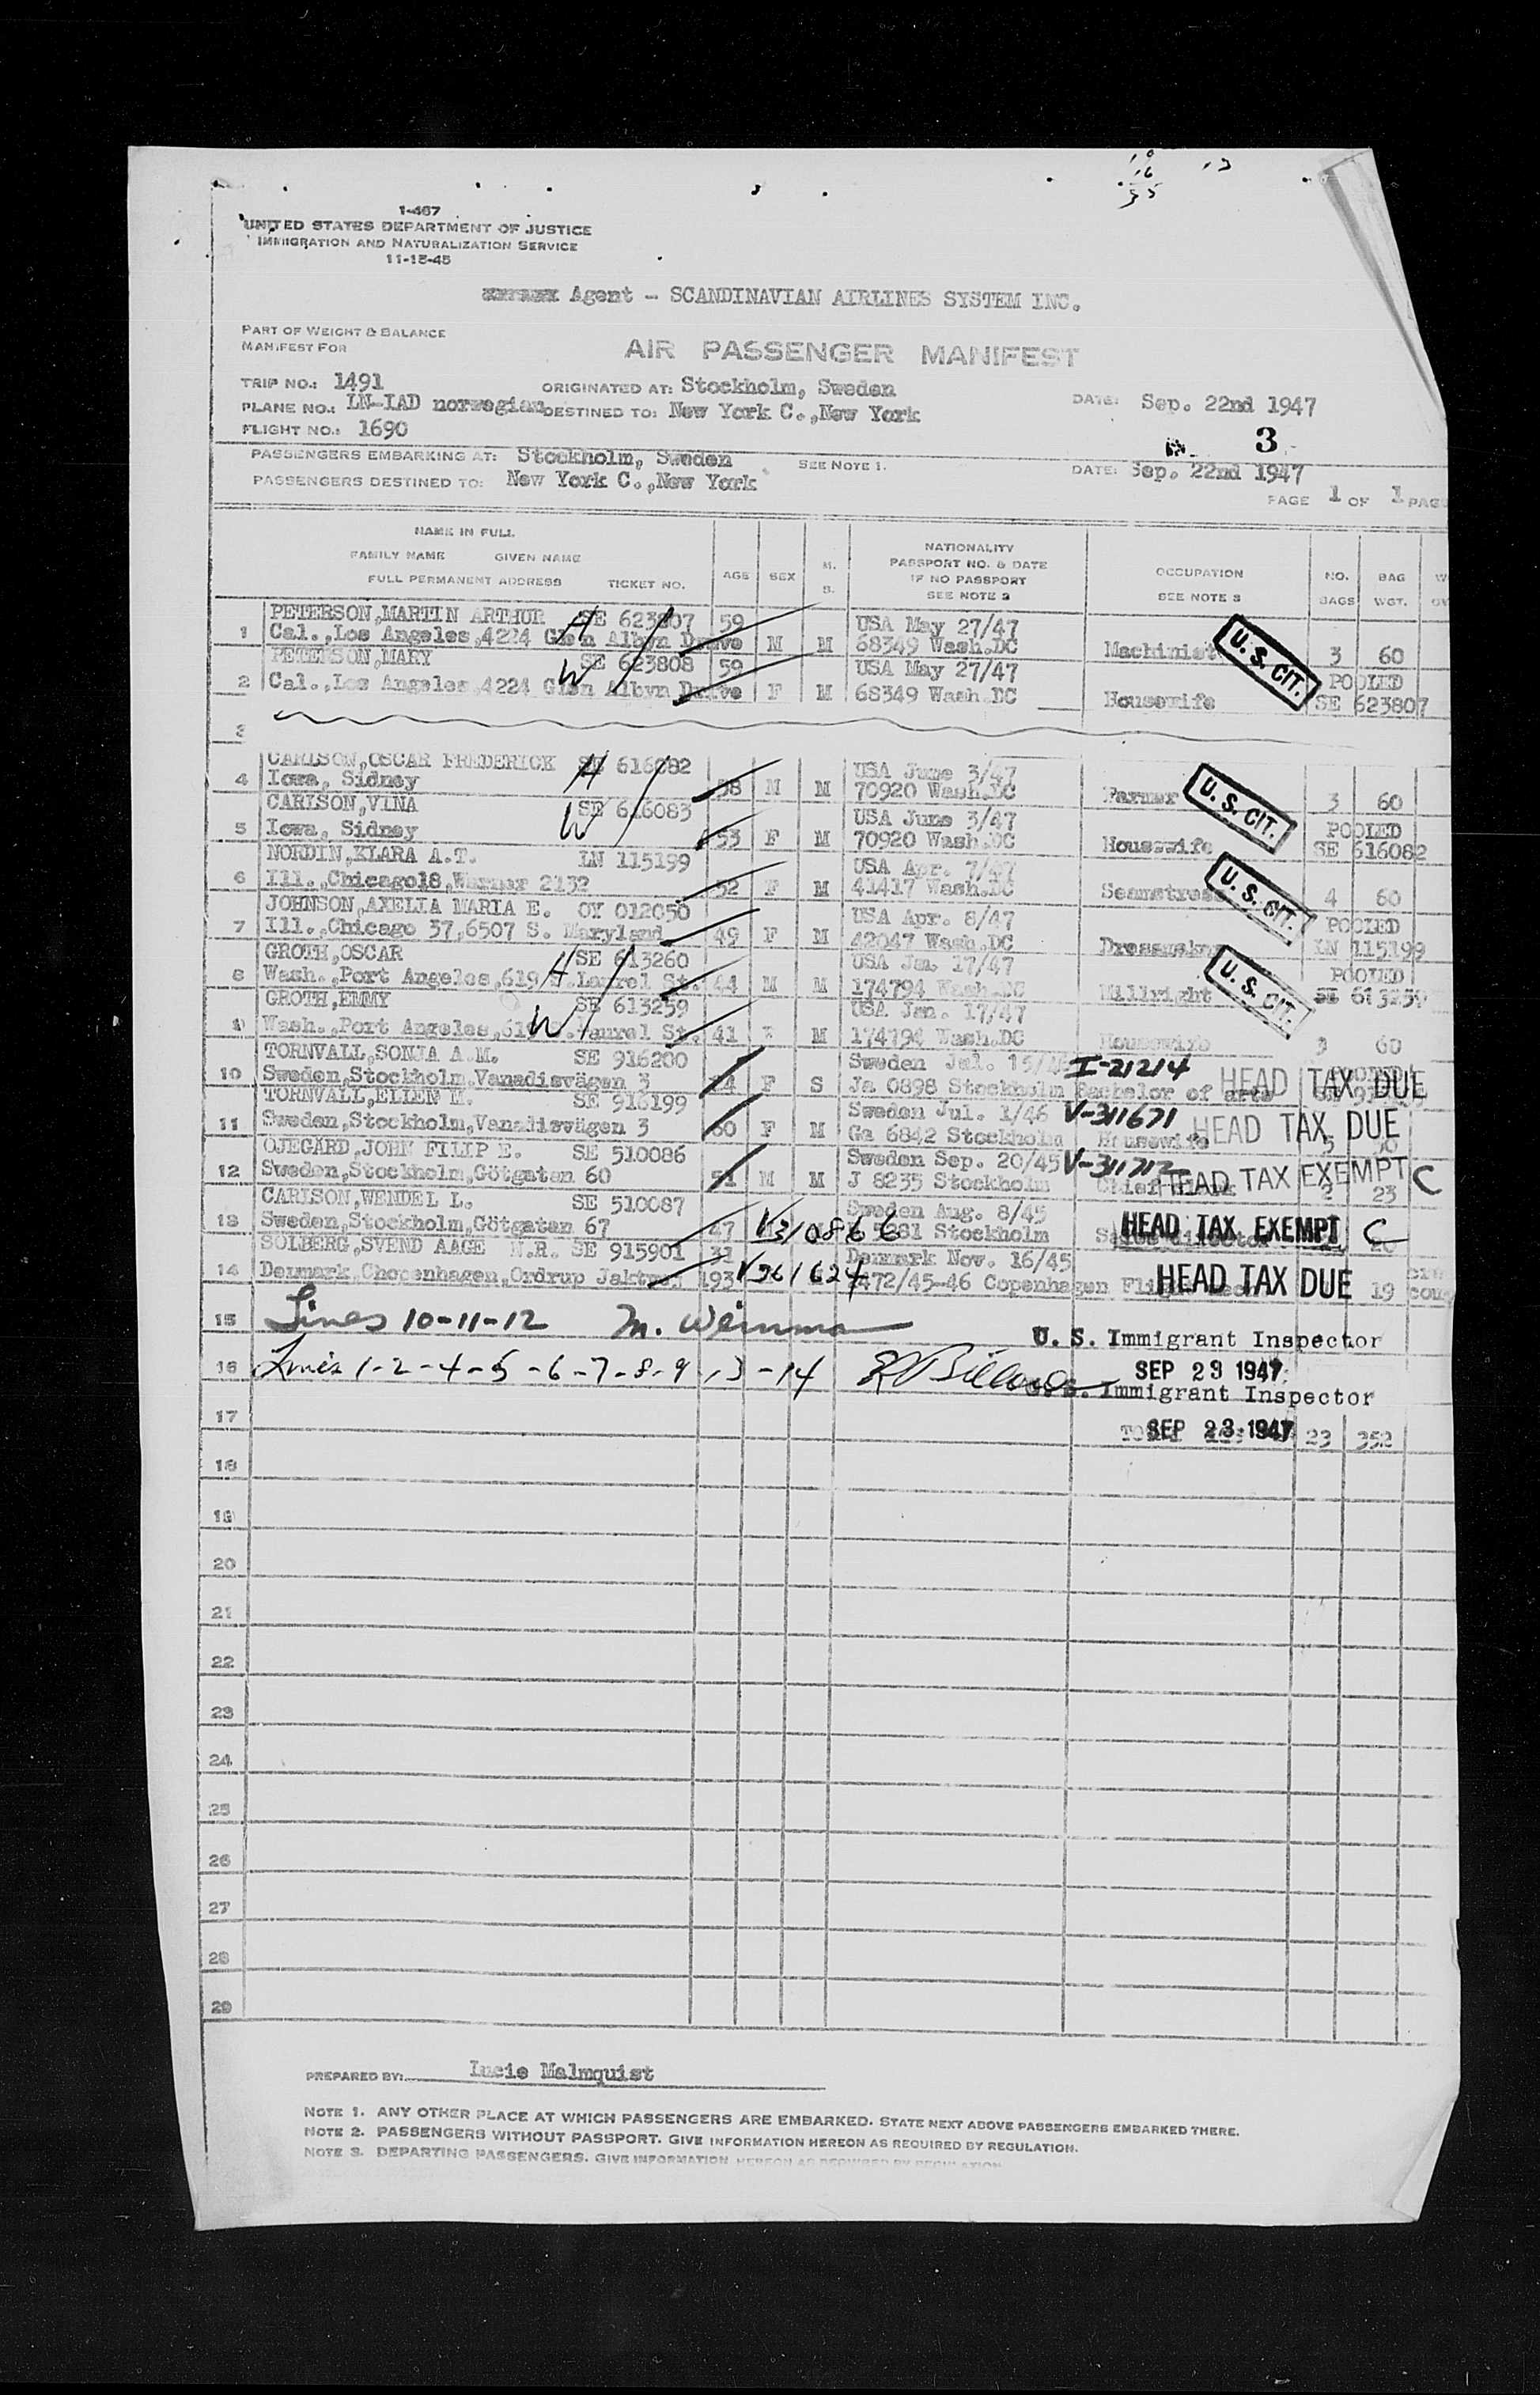 1-467
UNITED STATES DEPARTMENT OF JUSTICE
IMMIGRATION AND NATURALIZATION SERVICE
11-15-45
Agent - SCANDINAVIAN AIRLINES SYSTEM INC.
PART OF WEIGHT & BALANCE
MANIFEST FOR
AIR PASSENGER MANIFEST
TRIP NO.: 1491 ORIGINATED AT: Stockholm, Sweden
PLANE NO.: LN-IAD norwegian DESTINED TO: New York C.,New York DATE: Sep. 22nd 1947
FLIGHT NO.: 1690
3
PASSENGERS EMBARKING AT: Stockholm, Sweden SEE NOTE 1. DATE: Sep. 22nd 1947
PASSENGERS DESTINED TO: New York C.,New York
PAGE 1 OF 1
NAME IN FULL
FAMILY NAME GIVEN NAME
FULL PERMANENT ADDRESS TICKET NO. AGE SEX M. S. NATIONALITY PASSPORT NO. & DATE IF NO PASSPORT SEE NOTE 2 OCCUPATION SEE NOTE 3 NO. BAGS BAG WGT.
PETERSON,MARTIN ARTHUR SE 623807 59 USA May 27/47
1 Cal.,Los Angeles,4224 Glen Albyn Drive M M 68349 Wash.DC Machinist U. S. CIT. 3 60
PETERSON,MARY SE 623808 59 USA May 27/47 POOLED
2 Cal.,Los Angeles,4224 Glen Albyn Drive F M 68349 Wash.DC Housewife SE 623807
3
CARLSON,OSCAR FREDERICK SE 616082 USA June 3/47
4 Iowa, Sidney 58 M M 70920 Wash.DC Farmer U. S. CIT. 3 60
CARLSON,VINA SE 616083 USA June 3/47 POOLED
5 Iowa, Sidney 53 F M 70920 Wash.DC Housewife SE 616082
NORDIN,KLARA A.T. LN 115199 USA Apr. 7/47
6 Ill.,Chicago18,Warner 2132 52 F M 41417 Wash.DC Seamstress U. S. CIT. 4 60
JOHNSON,AXELIA MARIA E. OY 012050 USA Apr. 8/47 POOLED
7 Ill.,Chicago 37,6507 S. Maryland 49 F M 42047 Wash.DC Dressmaker LN 115199
GROTH,OSCAR SE 613260 USA Jan. 17/47 POOLED
8 Wash.,Port Angeles,619 Laurel St. 44 M M 174794 Wash.DC Millright U. S. CIT. SE 613259
GROTH,EMMY SE 613259 USA Jan. 17/47
9 Wash.,Port Angeles,619 Laurel St. 41 F M 174794 Wash.DC Housewife 3 60
TORNVALL,SONJA A.M. SE 916200 Sweden Jul. 15/ I-21214
10 Sweden,Stockholm,Vanadisvägen 3 24 F S Ja 0898 Stockholm Bachelor of arts HEAD TAX DUE
TORNVALL,ELLEN M. SE 916199 Sweden Jul. 1/46 V-311671
11 Sweden,Stockholm,Vanadisvägen 3 60 F M Ga 6842 Stockholm Housewife HEAD TAX DUE
OJEGARD,JOHN FILIP E. SE 510086 Sweden Sep. 20/45 V-311712
12 Sweden,Stockholm,Götgatan 60 51 M M J 8235 Stockholm HEAD TAX EXEMPT C 2 23
CARLSON,WENDEL L. SE 510087 Sweden Aug. 8/45
13 Sweden,Stockholm,Götgatan 67 47 V310866 5881 Stockholm HEAD TAX EXEMPT C
SOLBERG,SVEND AAGE N.R. SE 915901 31 Denmark Nov. 16/45
14 Denmark,Chopenhagen,Ordrup V361624 2472/45-46 Copenhagen HEAD TAX DUE 19
15 Lines 10-11-12 M. Weinman U. S. Immigrant Inspector
SEP 23 1947
16 Lines 1-2-4-5-6-7-8-9-13-14 U. S. Immigrant Inspector
17 SEP 23 1947 23 352
18
19
20
21
22
23
24
25
26
27
28
29
PREPARED BY: Lucie Malmquist
NOTE 1. ANY OTHER PLACE AT WHICH PASSENGERS ARE EMBARKED. STATE NEXT ABOVE PASSENGERS EMBARKED THERE.
NOTE 2. PASSENGERS WITHOUT PASSPORT. GIVE INFORMATION HEREON AS REQUIRED BY REGULATION.
NOTE 3. DEPARTING PASSENGERS. GIVE INFORMATION HEREON AS REQUIRED BY REGULATION